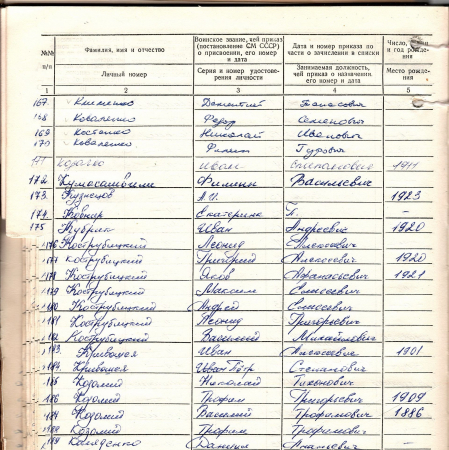 №№ п/п | Фамилия, имя и отчество | Воинское звание, кей приказ (постановление СМ СССР) о присвоении, его номер и дата | Дата и номер приказа по части о зачислении в списки | Число, и год рожде-
Личный номер | Серия и номер удостове-рения личности | Занимаемая должность, чей приказ о назначении его номер и дата | Место рожде-ния
1 2 3 4 5
167. Клименко Дементий Панасович
168 Коваленко Федор Семенович
169 Костенко Николай Иванович
170 Коваленко Филип Гурович
171 Иван Степанович 1911
172. Филипп Васильевич
173. Кузнецов А.И. 1923
174. Ковнир Екатерина П. —
175 Кубрак Иван Андреевич 1920
176 Кострубицкий Леонид Алексеевич
177 Кострубицкий Григорий Алексеевич 1920
178 Кострубицкий Яков Афанасьевич 1921
179 Кострубицкий Максим Елисеевич
180 Кострубицкий Андрей Елисеевич
181 Кострубицкий Леонид Григорьевич
182 Кострубицкий Василий Михайлович
183. Кривошея Иван Алексеевич 1901
184. Кривошея Иван Петр Степанович
185 Козолий Николай Тихонович
186 Козолий Трофим Григорьевич 1909
187 Козолий Василий Трофимович 1886
188 Козолий Трофим Трофимович —
189 Каляденко Данило